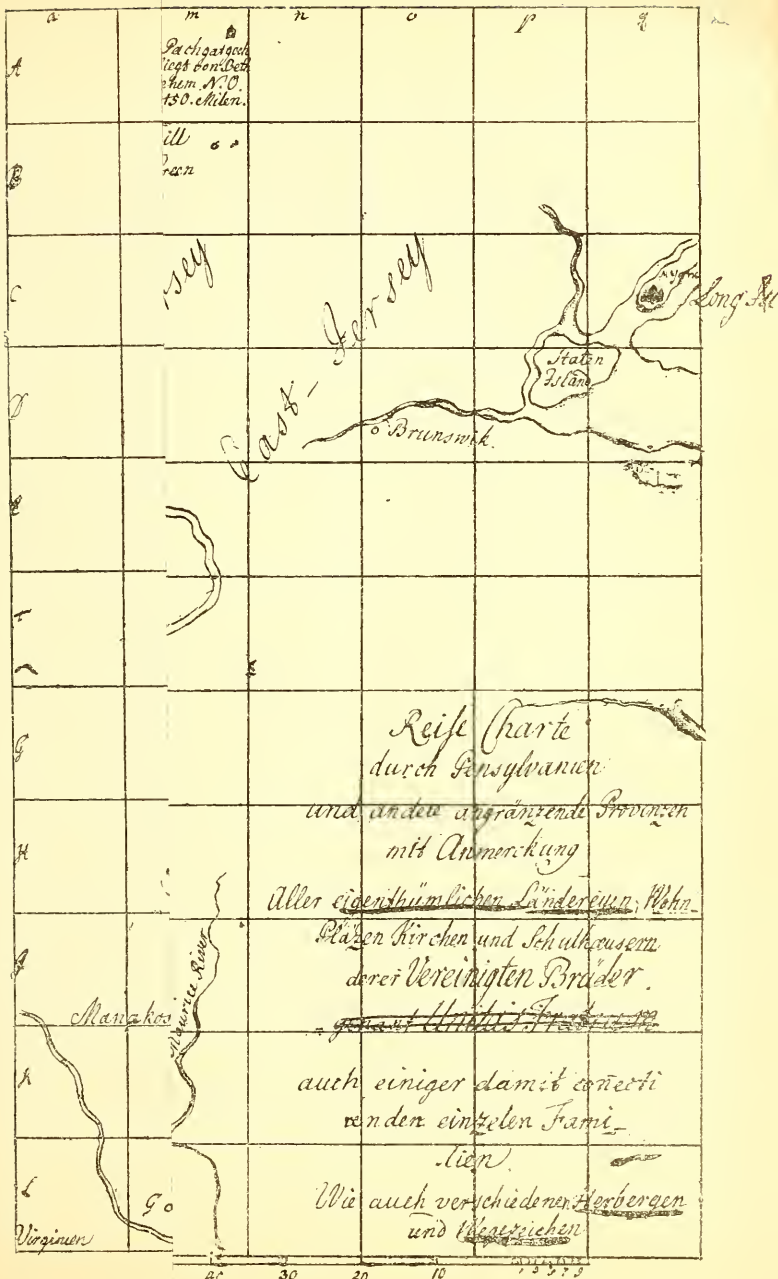 a m n o p q
A
Pachgatgoch
liegt von Beth
ehem N.O.
150. Milen.
B
ill
reen
C
rsey
East-Jersey
Long Isl
Staten
Island
D
Brunswik.
E
G
Reise Charte
durch Pensylvanien
und andere angränzende Provinzen
H
mit Anmerckung
Aller eigenthümlichen Ländereien, Wohn-
Pläzen Kirchen und Schulhäusern
derer Vereinigten Brüder.
Manakos
Maurice River
genant Unitas Fratrum
K
auch einiger damit coñecti
renden einzelen Fami-
lien.
L
Go
Wie auch verschiedener Herbergen
und Wegezeichen
Virginien
40 30 20 10